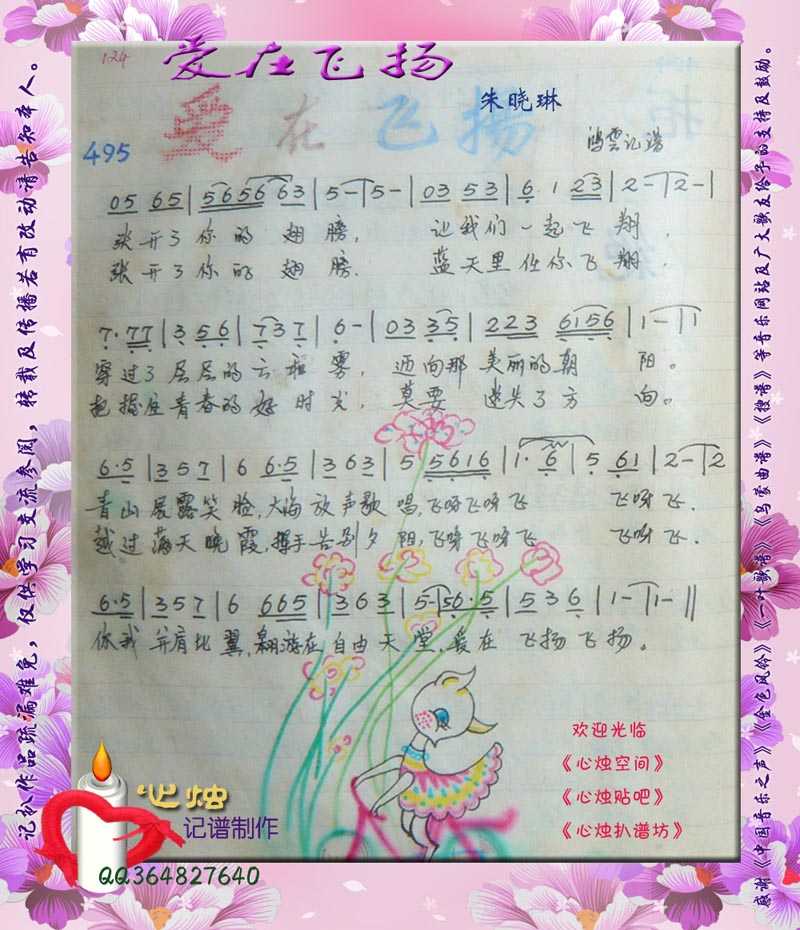 124
爱在飞扬
朱晓琳
爱在飞扬
495
鸿雲记谱
05 65 | 5656 63 | 5- | 5- | 03 53 | 6 1 23 | 2- | 2- |
张开了你的翅膀, 让我们一起飞翔,
张开了你的翅膀. 蓝天里任你飞翔.
7·77 | 3 56 | 737 | 6- | 03 35 | 223 6156 | 1- | 1
穿过了层层的云和雾, 迈向那美丽的朝阳。
把握住青春的好时光, 莫要迷失了方向。
6·5 | 357 | 6 6·5 | 363 | 5 5616 | 1· 6 | 5 61 | 2- | 2
青山展露笑脸,大海放声歌唱,飞呀飞呀飞 飞呀飞.
越过满天晚霞,挥手告别夕阳,飞呀飞呀飞 飞呀飞.
6·5 | 357 | 6 665 | 363 | 5- | 56·5 | 536 | 1- | 1- ||
你我并肩比翼,翱游在自由天堂,爱在飞扬飞扬。
欢迎光临
《心烛空间》
《心烛贴吧》
《心烛扒谱坊》
心烛
记谱制作
QQ364827640
记扒作品疏漏难免,仅供学习交流参阅,转载及传播若有改动请告知本人。
感谢《中国音乐之声》《金色风铃》《一叶歌谱》《乌蒙曲谱》《搜谱》等音乐网站及广大歌友给予的支持及鼓励。